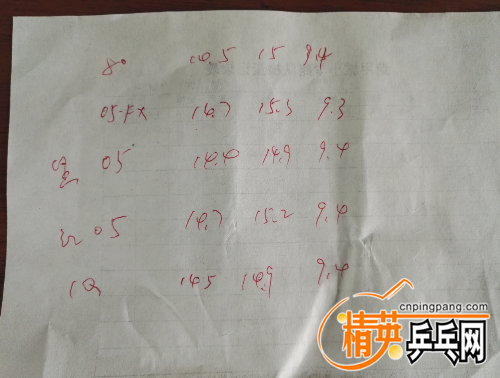 80 14.5 15 9.4
05-FX 14.7 15.3 9.3
05 14.4 14.9 9.4
红 05 14.7 15.2 9.4
1Q 14.5 14.9 9.4
cnpingpang.com
精英乒乓网